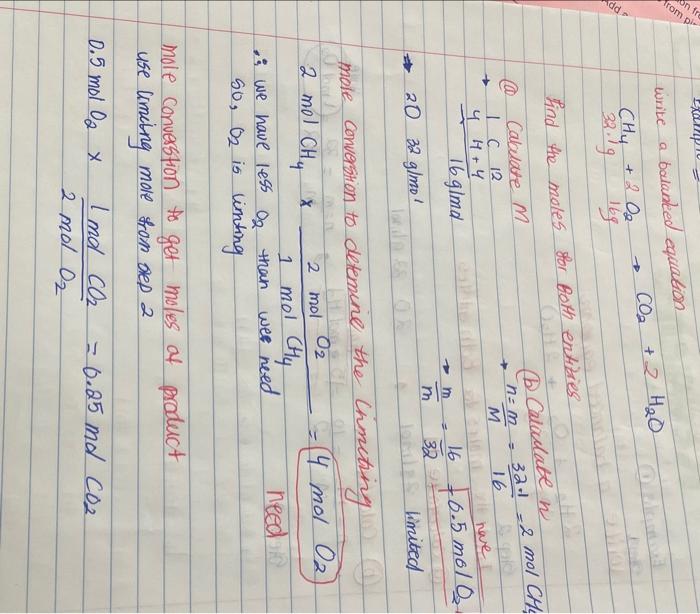 Example =
write a balanced equation
CH4 + 2O2 → CO2 + 2 H2O
32.1g 16g
find the moles for both entities
@ Calculate M
→ 1 C 12
4 H + 4
16 g/mol
→ 2O 32 g/mol
(b) Calculate n
→ n = m/M = 32.1/16 = 2 mol CH4
→ m/m = 16/32 + 6.5 mol O2
have
limited
mole conversion to determine the limiting
2 mol CH4 x 2 mol O2 / 1 mol CH4 = 4 mol O2
need
∴ we have less O2 than wee need
so, O2 is limiting
mole conversion to get moles of product
use limiting mole from step 2
0.5 mol O2 x 1 mol CO2 / 2 mol O2 = 6.25 mol CO2